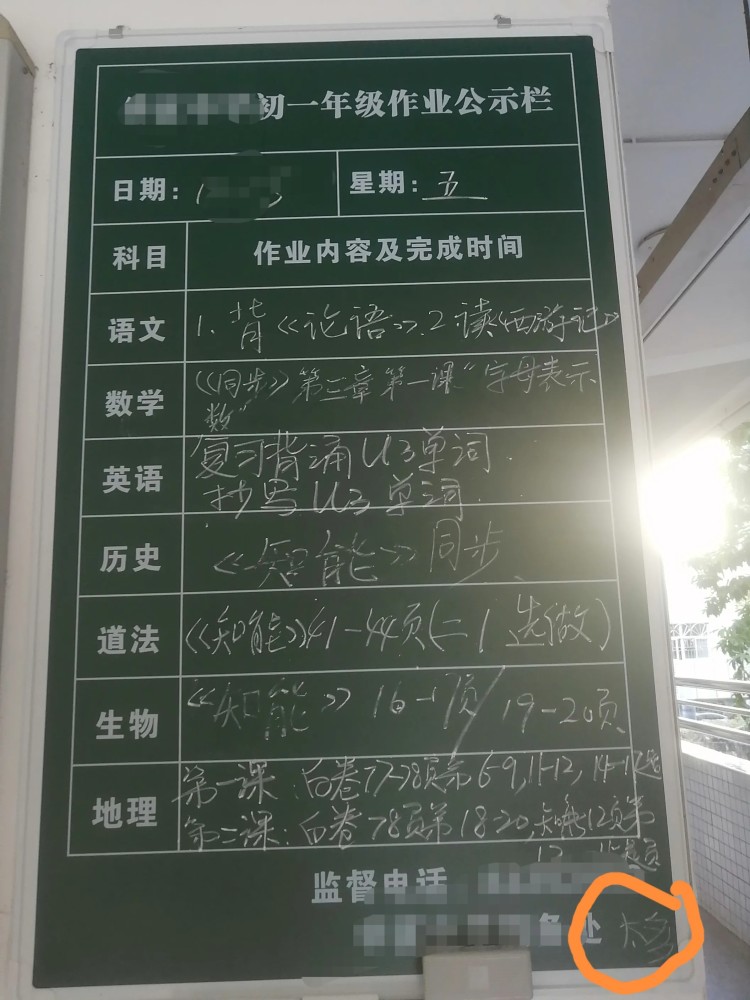 初一年级作业公示栏
日期: 星期: 五
科目 作业内容及完成时间
语文 1.背《论语》.2读《西游记》
数学 《同步》第三章第一课“字母表示
数”
英语 复习背诵U3单词.
抄写U3单词.
历史 《知能》同步
道法 《知能》41-44页(二1选做)
生物 《知能》16-17页/19-20页
地理 第一课:白卷77-78页第6-9,11-12,14-17题
第二课:白卷78页第18-20,知能12页第
监督电话
处 太多